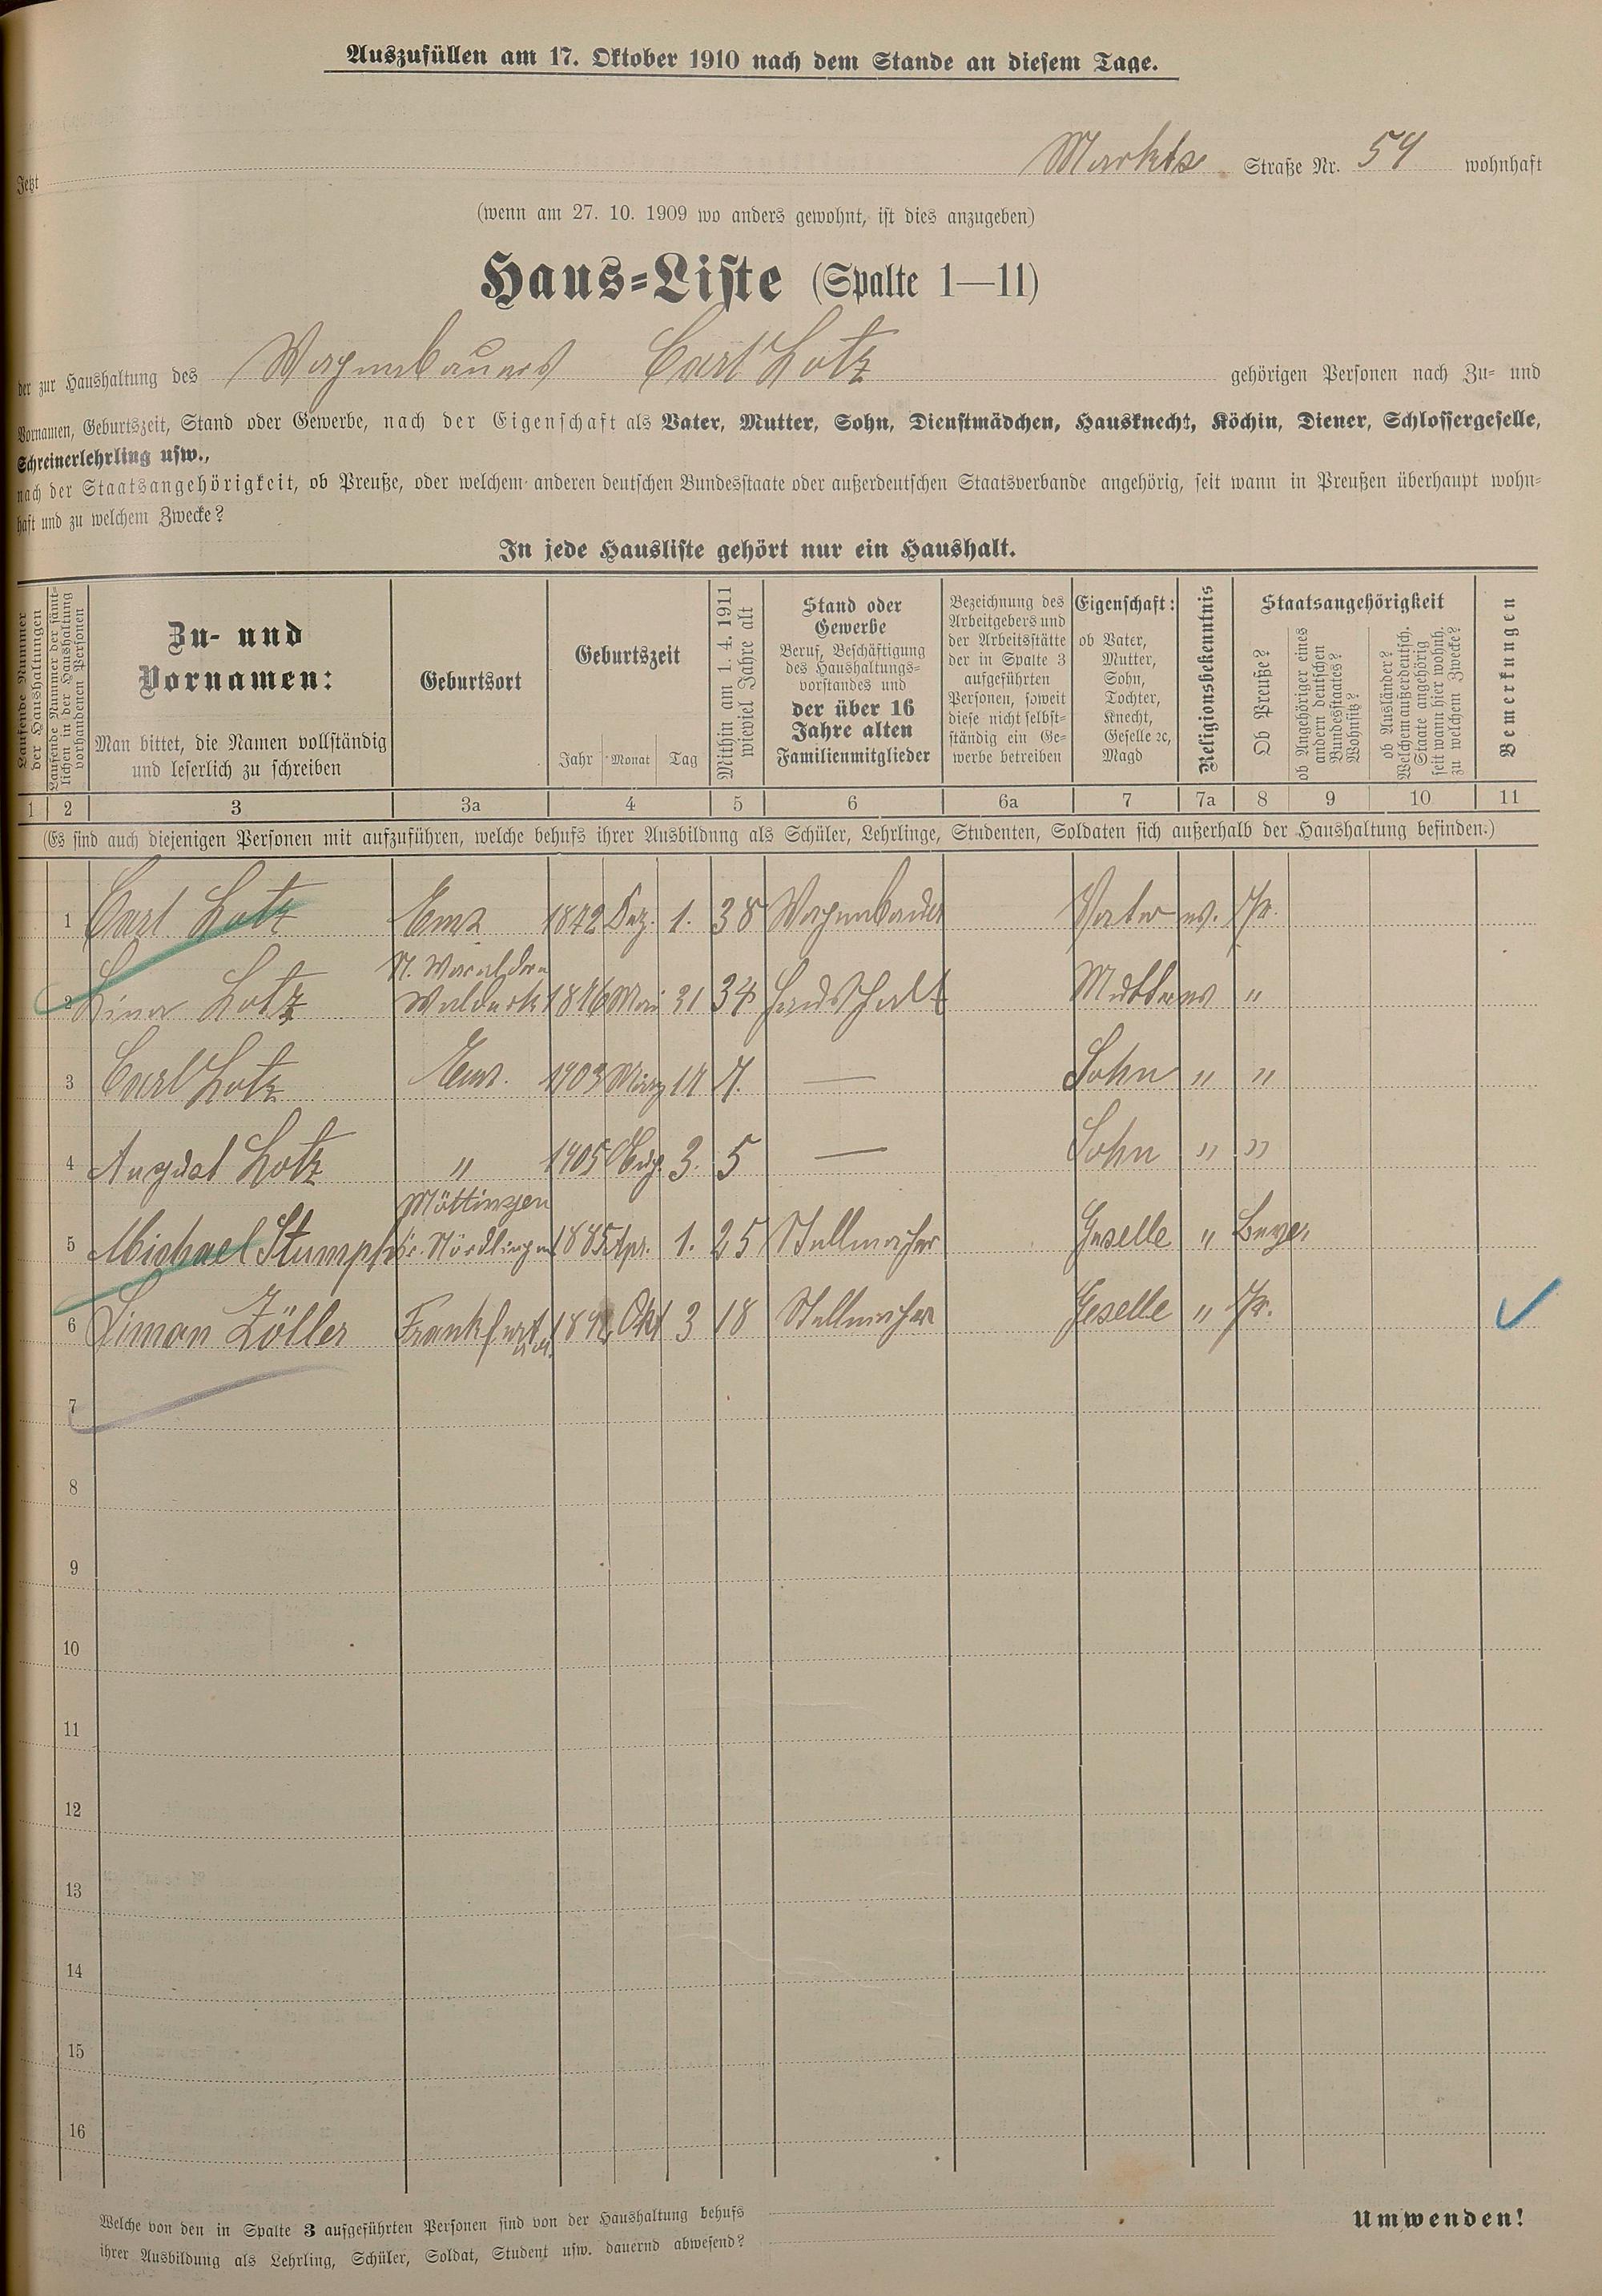 Auszufüllen am 17. Oktober 1910 nach dem Stande an diesem Tage.
Jetzt Markts Straße Nr. 54 wohnhaft
(wenn am 27. 10. 1909 wo anders gewohnt, ist dies anzugeben)
Haus-Liste (Spalte 1—11)
der zur Haushaltung des Wagenbauers Carl Lotz gehörigen Personen nach Zu- und
Vornamen, Geburtszeit, Stand oder Gewerbe, nach der Eigenschaft als Vater, Mutter, Sohn, Dienstmädchen, Hausknecht, Köchin, Diener, Schlossergeselle,
Schreinerlehrling usw.,
nach der Staatsangehörigkeit, ob Preuße, oder welchem anderen deutschen Bundesstaate oder außerdeutschen Staatsverbande angehörig, seit wann in Preußen überhaupt wohn-
haft und zu welchem Zwecke?
In jede Hausliste gehört nur ein Haushalt.
Laufende Nummer der Haushaltungen
Laufende Nummer der sämt-lichen in der Haushaltung vorhandenen Personen
Zu- und Vornamen:
Man bittet, die Namen vollständig und leserlich zu schreiben
Geburtsort
Geburtszeit
Jahr Monat Tag
Mithin am 1. 4. 1911 wieviel Jahre alt
Stand oder Gewerbe
Beruf, Beschäftigung des Haushaltungs-vorstandes und der über 16 Jahre alten Familienmitglieder
Bezeichnung des Arbeitgebers und der Arbeitsstätte der in Spalte 3 aufgeführten Personen, soweit diese nicht selbst-ständig ein Ge-werbe betreiben
Eigenschaft:
ob Vater, Mutter, Sohn, Tochter, Knecht, Geselle ꝛc, Magd
Religionsbekenntnis
Staatsangehörigkeit
Ob Preuße?
ob Angehöriger eines andern deutschen Bundesstaates? Wohnsitz?
ob Ausländer? Welchem außerdeutsch. Staate angehörig seit wann hier wohnh. zu welchem Zwecke?
Bemerkungen
1 2 3 3a 4 5 6 6a 7 7a 8 9 10 11
(Es sind auch diejenigen Personen mit aufzuführen, welche behufs ihrer Ausbildung als Schüler, Lehrlinge, Studenten, Soldaten sich außerhalb der Haushaltung befinden.)
1 Carl Lotz Ems 1872 Dez. 1. 38 Wagenbauer Vater ev. Pr.
2 Lina Lotz Waldeck 1876 Mai 21 34 Haushalt Mutter ev "
3 Carl Lotz Ems. 1903 März 14 7. — Sohn " "
4 August Lotz " 1905 Aug. 3. 5 — Sohn " "
Möttingen
5 Michael Stumpf Nördlingen 1885 Apr. 1. 25 Stellmacher Geselle " Bayer
6 Simon Zöller Frankfurt a. M. 1892 Okt 3 18 Stellmacher Geselle " Pr.
7
8
9
10
11
12
13
14
15
16
Welche von den in Spalte 3 aufgeführten Personen sind von der Haushaltung behufs
ihrer Ausbildung als Lehrling, Schüler, Soldat, Student usw. dauernd abwesend?
Umwenden!